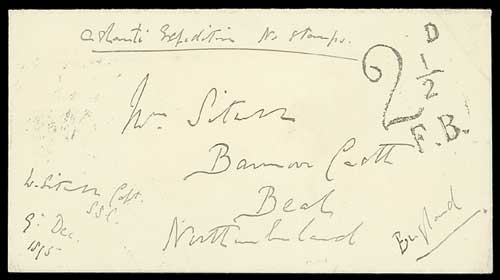 Ashanti Expedition No stamps.
2 1/2 D
F.B.
Mrs Sitwell
Barmoor Castle
Beal
Northumberland
England
W. Sitwell Capt.
9 Dec.
1895